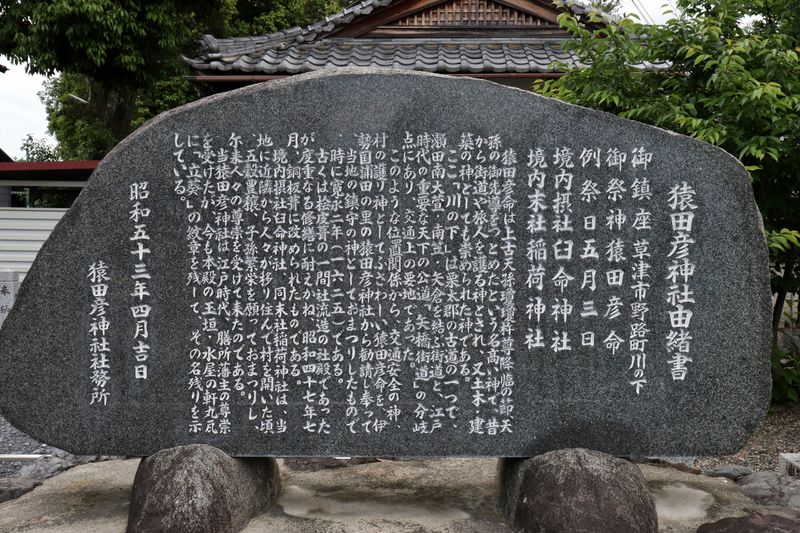 猿田彦神社由緒書
御鎮座 草津市野路町川の下
御祭神 猿田彦命
例祭日 五月三日
境内摂社 臼命神社
境内末社 稲荷神社
猿田彦命は上古天孫瓊瓊杵尊降臨の節、天
孫の御先導をつとめたという名高い神で、昔
から街道や旅人を護る神とされ、又土木・建
築の神としても崇められた神である。
ここ「川の下」は栗太郡の古道の一つで、
瀬田南大萱・南笠・矢倉を結ぶ街道と、江戸
時代の重要な天下の公道「矢橋街道」の分岐
点にあり、交通上の要地であった。
このような位置関係から、交通安全の神、
村の護り神としてふさわしい猿田彦命を、伊
勢国浦田の里の猿田彦神社から勧請し奉って
当地の鎮守の神としておまつりしたもので
時に寛永二年(一六二五)である。
古くは桧皮葺の一間社流造の社殿であった
が度重なる修繕に耐えかね、昭和四十七年七
月、銅板葺に改められたものである。
境内摂社臼命神社、同末社稲荷神社は、当
地に近隣から人々が移り住んで村を開いた頃
、五穀豊穣、子孫繁栄を願っておまつりし、
尓来人々の尊崇を受けて来たのである。
当猿田彦神社は江戸時代、膳所藩主の尊崇
を受けたが、今も本殿の玉垣・水屋の軒丸瓦
に「立葵」の徽章を残して、その名残りを示
している。
昭和五十三年四月吉日
猿田彦神社社務所